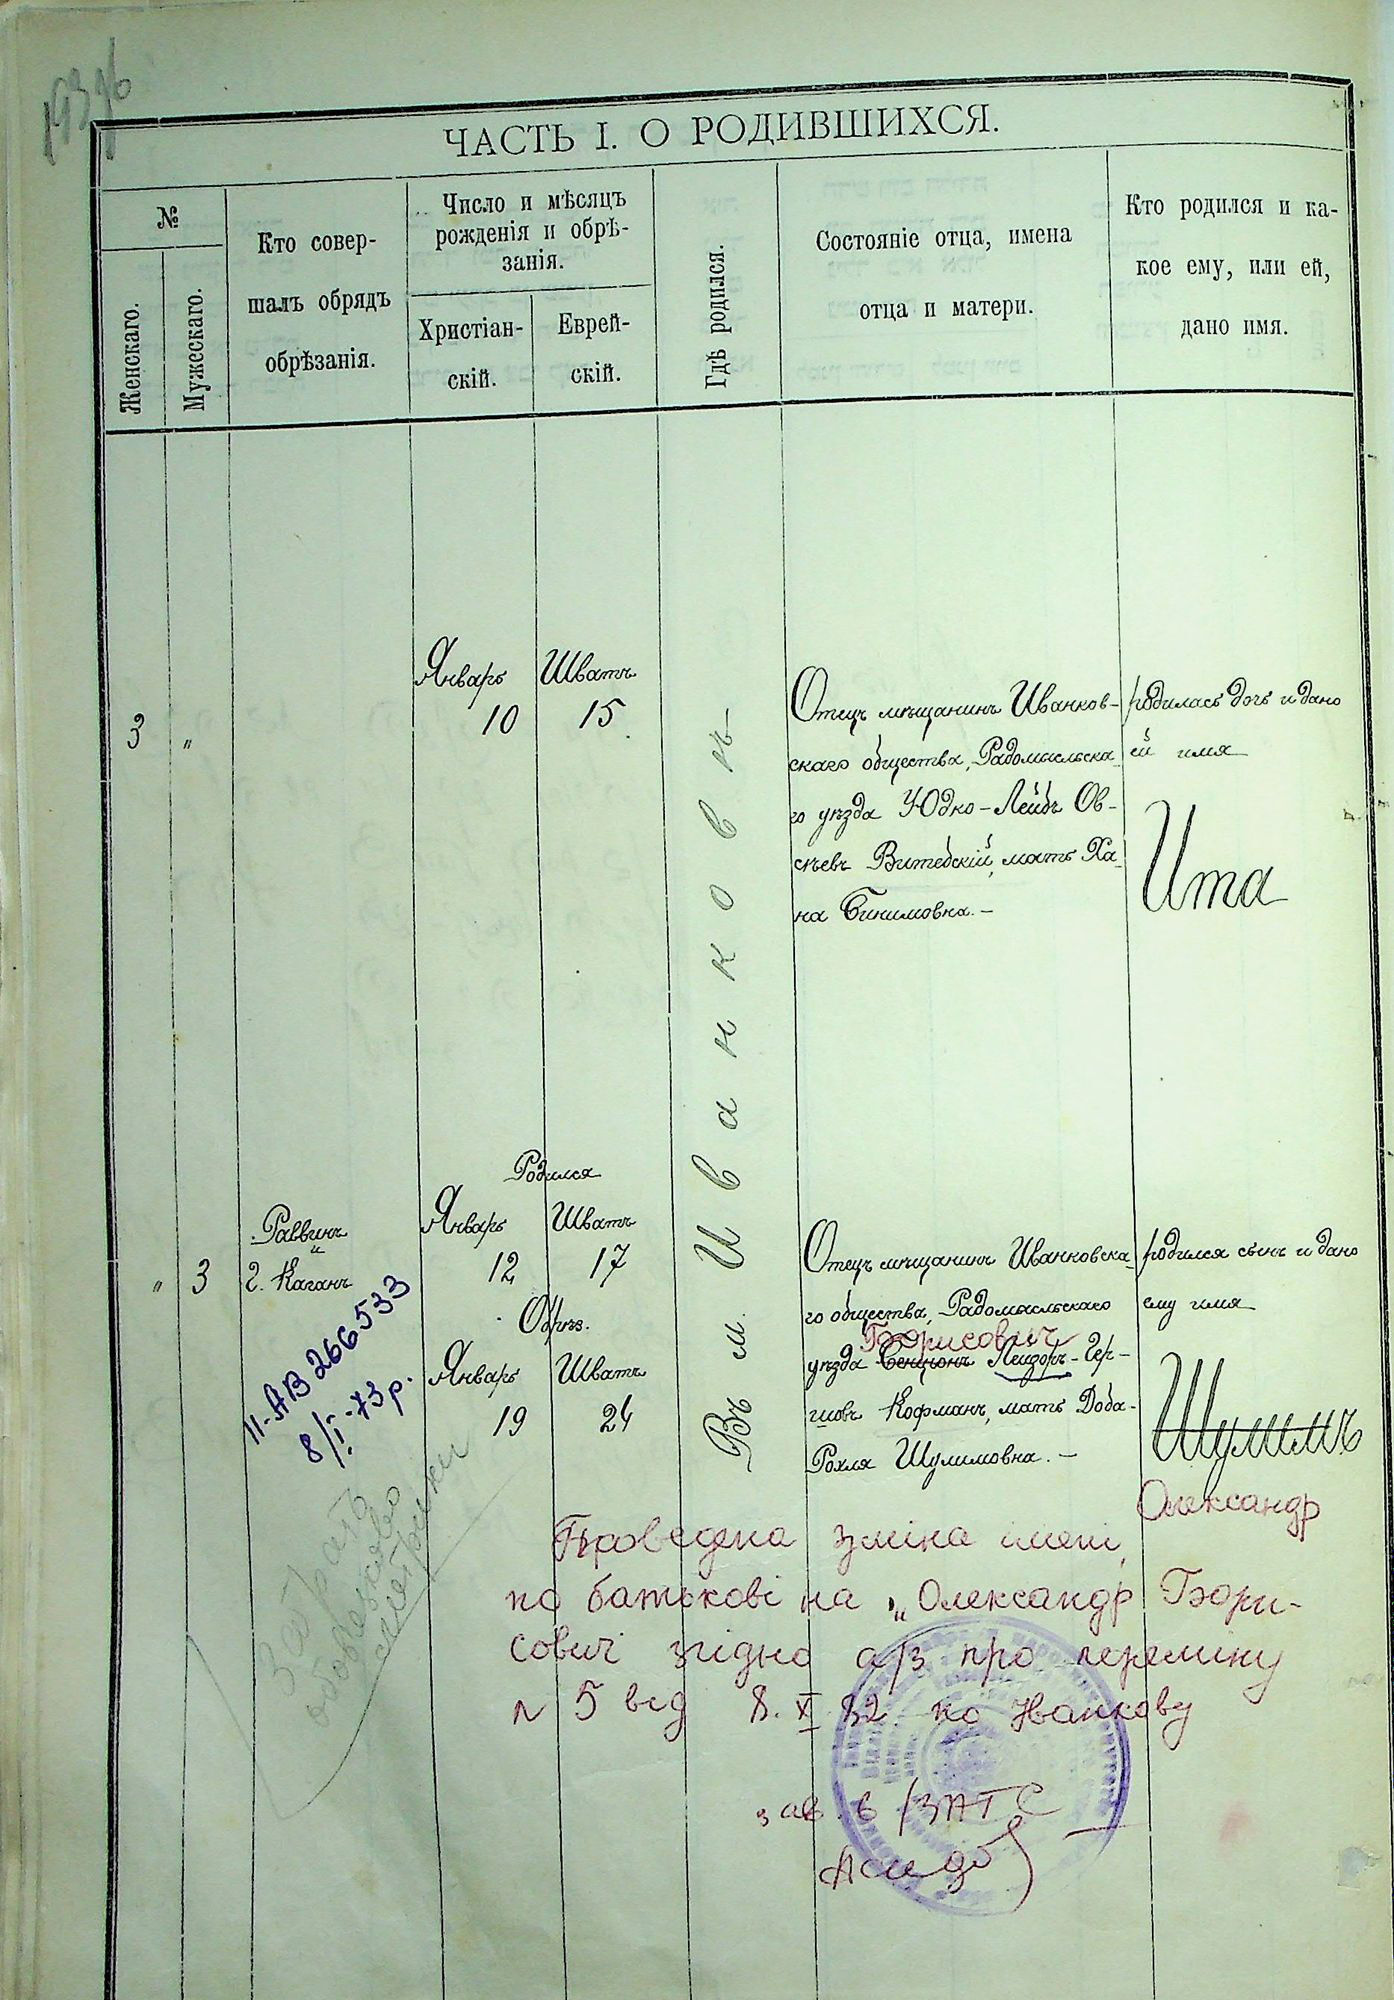 193
ЧАСТЬ I. О РОДИВШИХСЯ.
№
Женскаго.
Мужескаго.
Кто совер-
шалъ обрядъ
обрѣзанія.
Число и мѣсяцъ
рожденія и обрѣ-
занія.
Христіан-
скій.
Еврей-
скій.
Гдѣ родился.
Состояніе отца, имена
отца и матери.
Кто родился и ка-
кое ему, или ей,
дано имя.
3 "
Январь
10
Шватъ
15
Въ м. Иванковѣ
Отецъ мѣщанинъ Иванков-
скаго общества, Радомысльска
го уѣзда Юдко-Лейбъ Ов-
сѣевъ Витебскій, мать Ха-
на Бинимовна. —
родилась дочь и дано
ей имя
Ита
" 3
Раввинъ
Г. Каганъ
Родился
Январь
12
Шватъ
17
Обрѣз.
Январь
19
Шватъ
24
Отецъ мѣщанинъ Иванковска
го общества, Радомысльскаго
Борисович
уѣзда Бенціонъ Лейзоръ-Гер-
шовъ Кофманъ, мать Доба-
Рохля Шулимовна. —
родился сынъ и дано
ему имя
Шулимъ
Олександр
II-АВ 266533
8/I-73 р.
Проведена зміна імені,
по батькові на „Олександр Бори-
сович згідно а/з про переміну
№ 5 від 8.X.82 по Іванкову
зав. в/ЗАГС